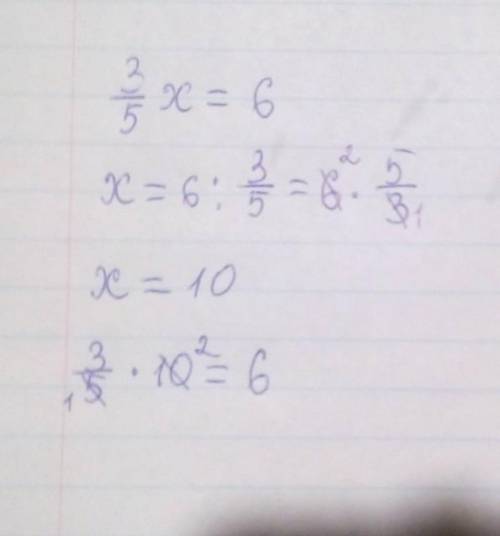 3/5 x = 6
x = 6 : 3/5 = 6 2 · 5/3 1
x = 10
3/5 1 · 10 2 = 6